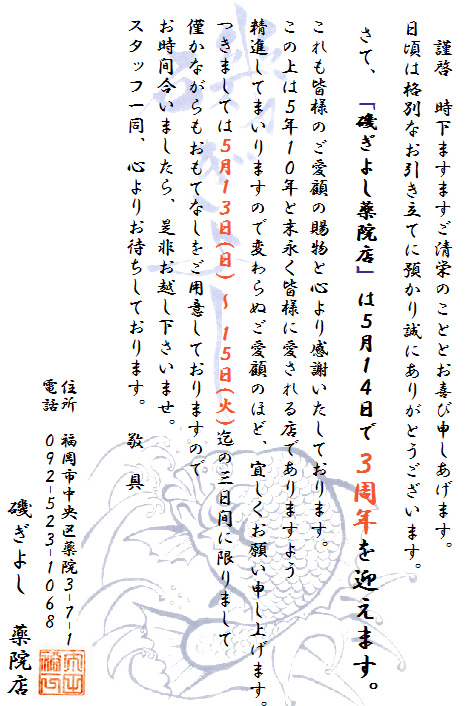 謹啓　時下ますますご清栄のこととお喜び申しあげます。
日頃は格別なお引き立てに預かり誠にありがとうございます。
さて、「磯ぎよし薬院店」は５月１４日で３周年を迎えます。
これも皆様のご愛顧の賜物と心より感謝いたしております。
この上は５年１０年と末永く皆様に愛される店でありますよう
精進してまいりますので変わらぬご愛顧のほど、宜しくお願い申し上げます。
つきましては５月１３日(日)～１５日(火)迄の三日間に限りまして
僅かながらもおもてなしをご用意しておりますので
お時間合いましたら、是非お越し下さいませ。
スタッフ一同、心よりお待ちしております。　敬　具
住所　福岡市中央区薬院３-７-１
電話　０９２-５２３-１０６８
磯ぎよし　薬院店